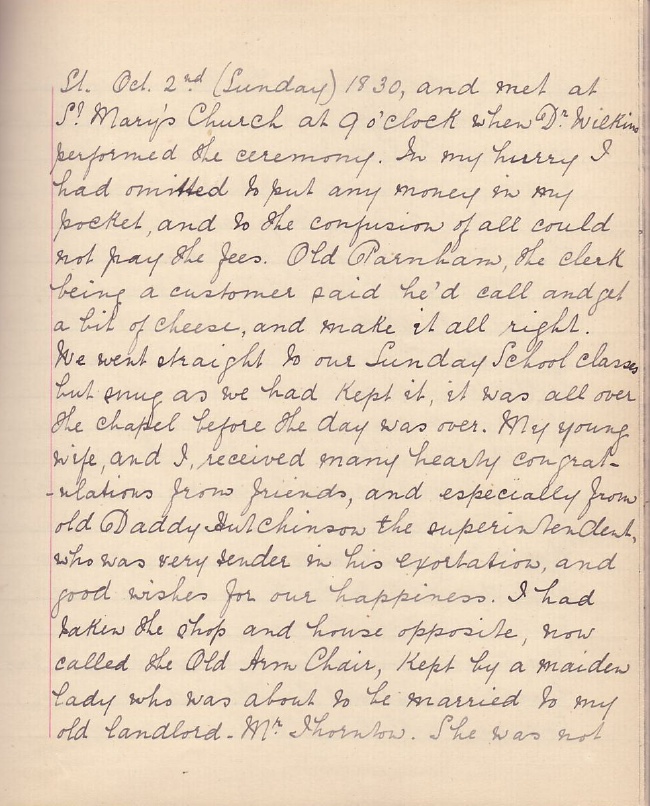 St. Oct. 2nd (Sunday) 1830, and met at
St Mary's Church at 9 o'clock when Dr Wilkins
performed the ceremony. In my hurry I
had omitted to put any money in my
pocket, and to the confusion of all could
not pay the fees. Old Parnham, the clerk
being a customer said he'd call and get
a bit of cheese, and make it all right.
We went straight to our Sunday School classes
but snug as we had kept it, it was all over
the chapel before the day was over. My young
wife, and I, received many hearty congrat-
-ulations from friends, and especially from
old Daddy Hutchinson the superintendent,
who was very tender in his exortation, and
good wishes for our happiness. I had
taken the shop and house opposite, now
called the Old Arm Chair, kept by a maiden
lady who was about to be married to my
old landlord - Mr Thornton. She was not